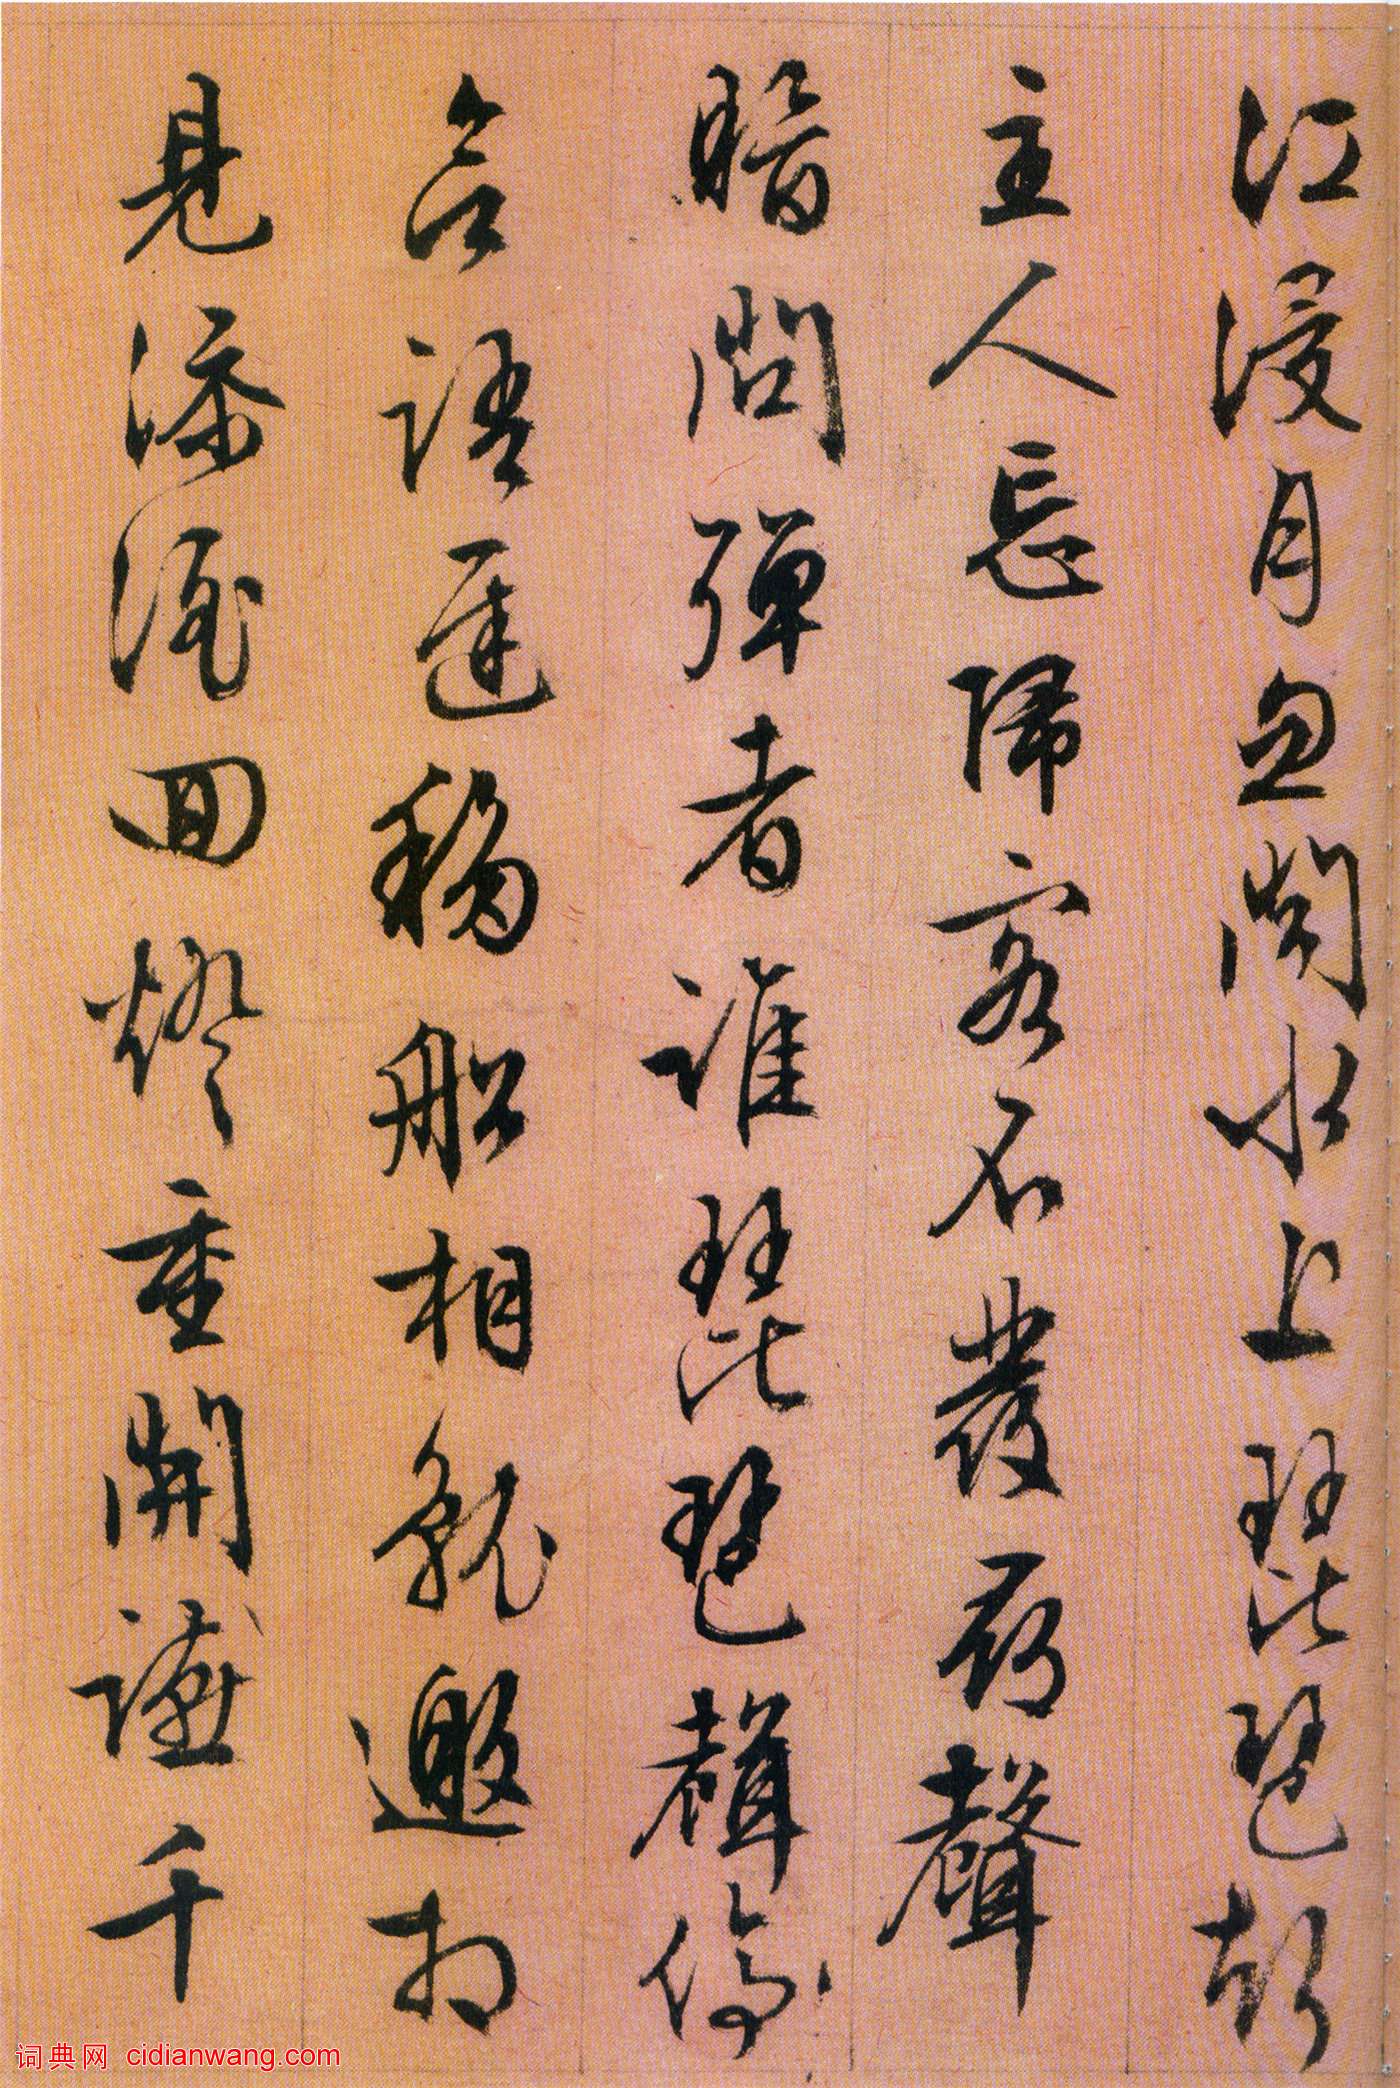 江浸月忽聞水上琵琶聲
主人忘歸客不發尋聲
暗問彈者誰琵琶聲停
含語遲移船相就邀相
見添酒回燈重開讌千
词典网 cidianwang.com